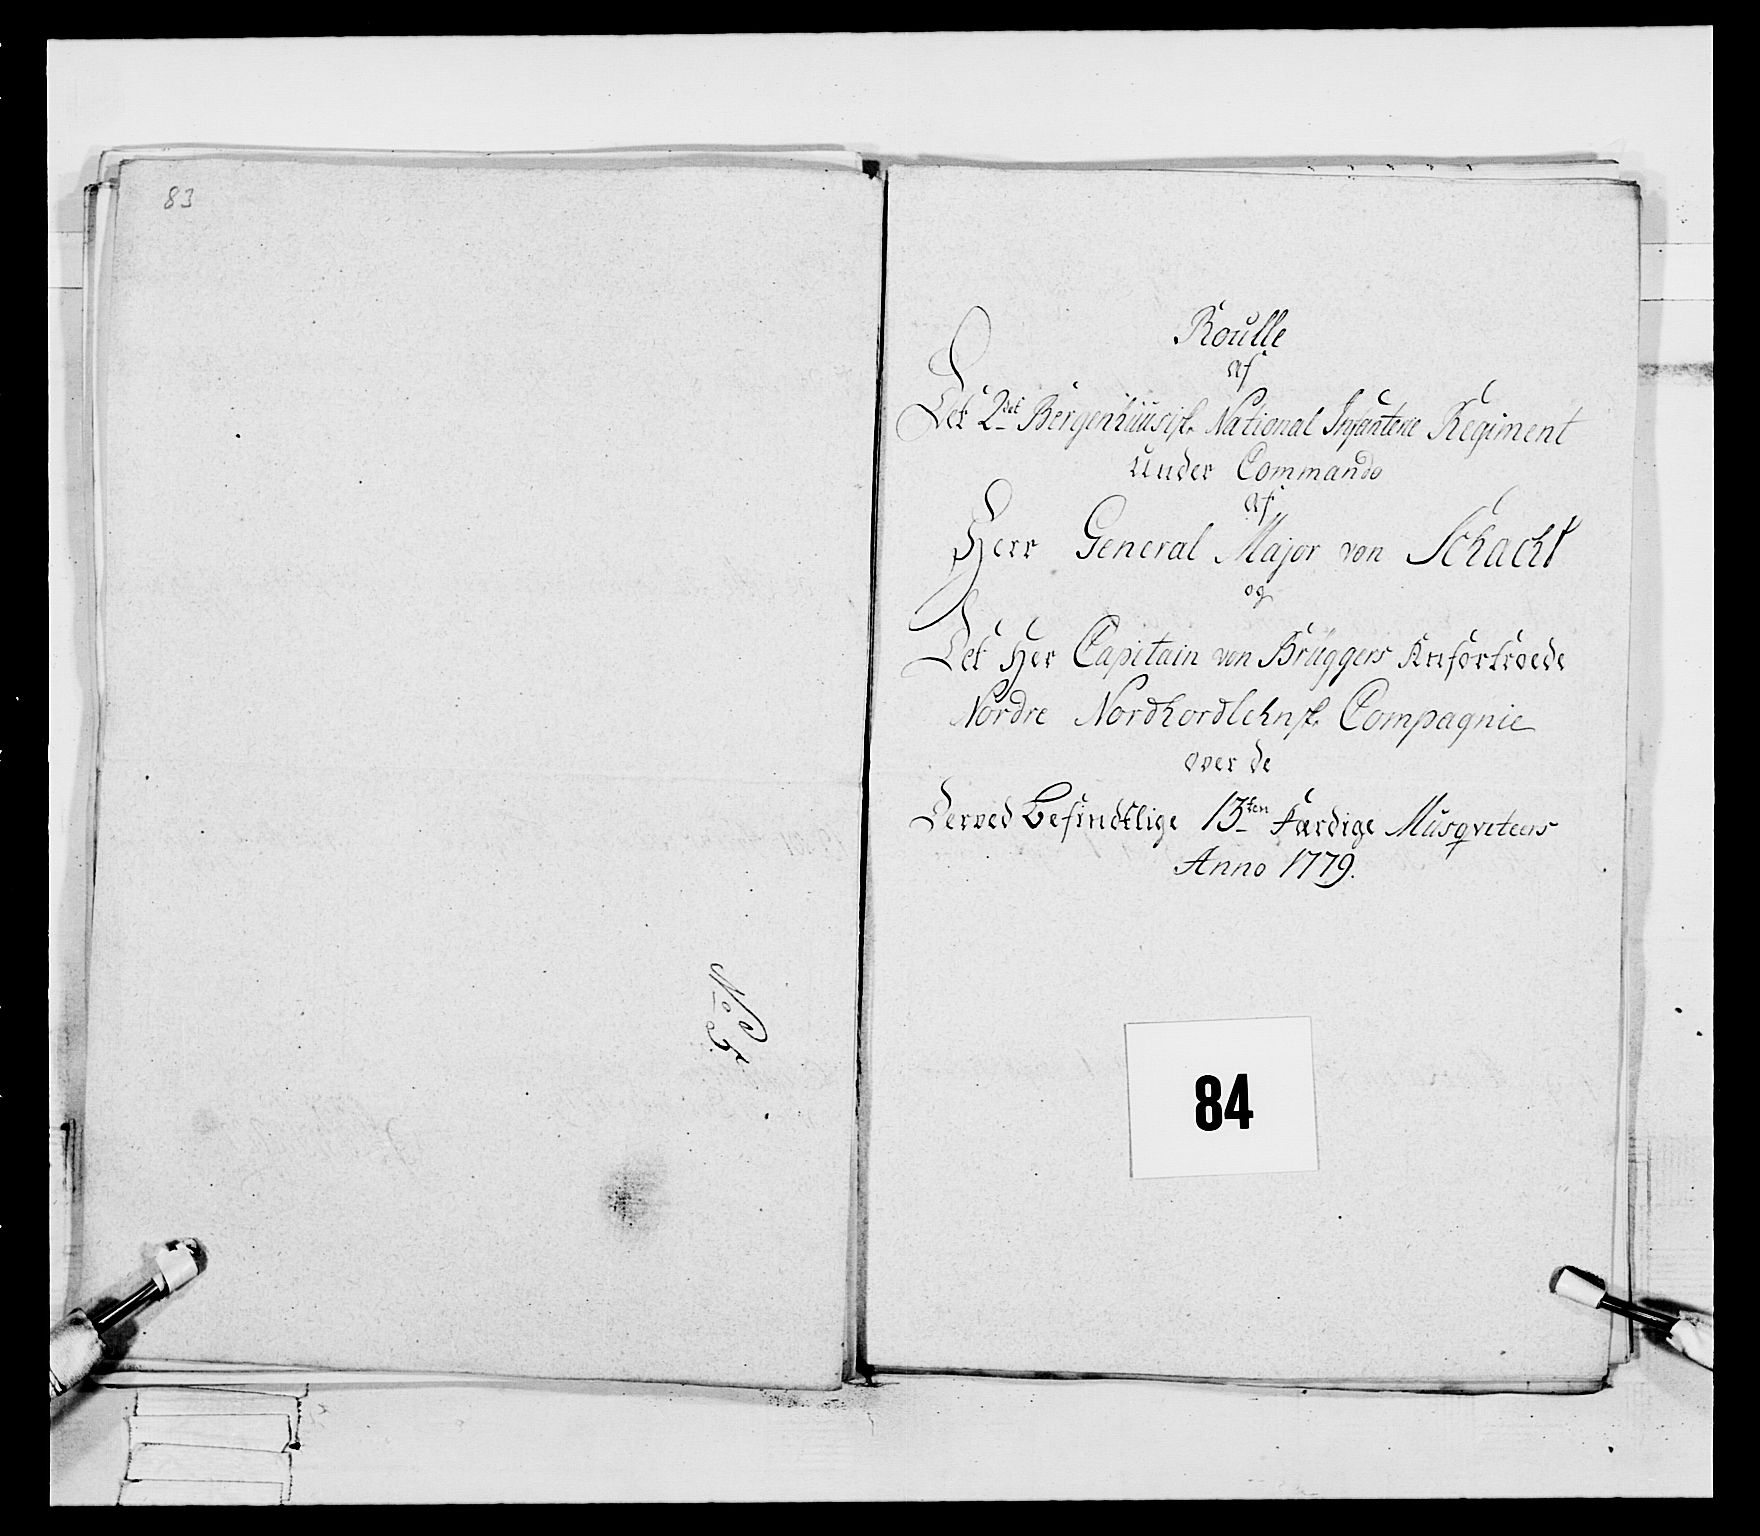 83
No 5
Roulle
af
Det 2det Bergenhuusisk. National Infanterie Regiment
under Commando
af
Herr General Major von Schacht
og
Det Her Capitain von Brüggers Anfortroede
Nordre Nordhordlehnsk. Compagnie
over de
Derved Befindtlige 13ten Færdige Musqveteers
Anno 1779.
84